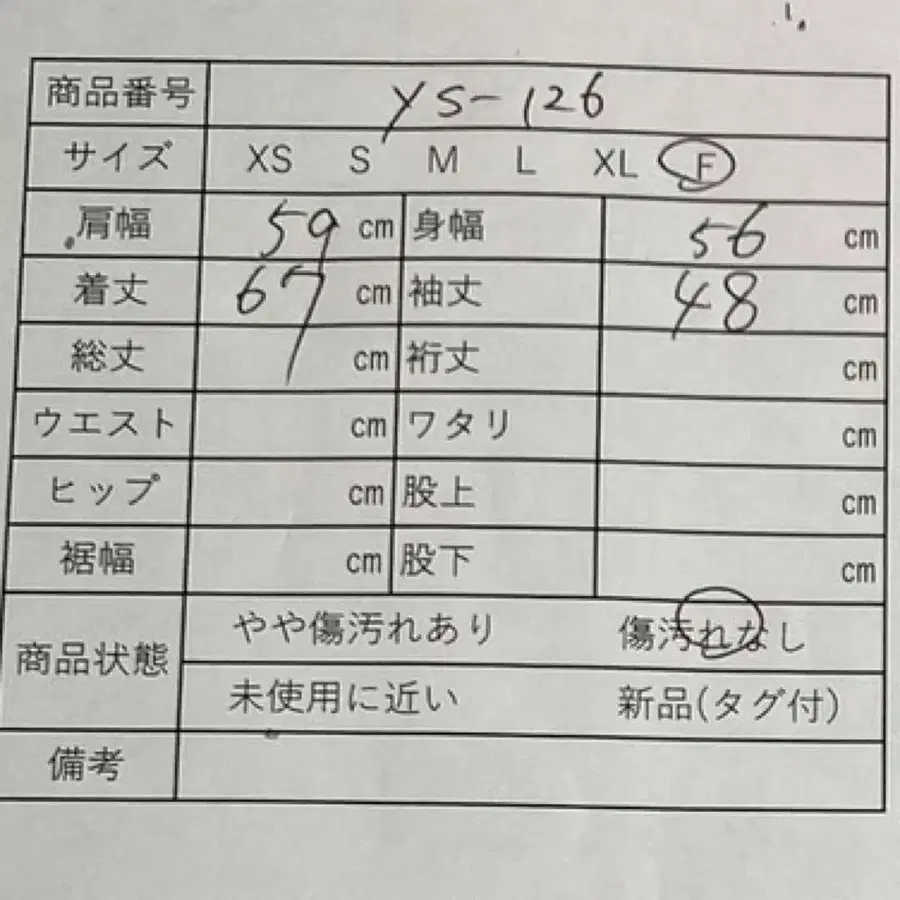 商品番号 YS-126
サイズ XS S M L XL F
肩幅 59 cm 身幅 56 cm
着丈 67 cm 袖丈 48 cm
総丈 cm 裄丈 cm
ウエスト cm ワタリ cm
ヒップ cm 股上 cm
裾幅 cm 股下 cm
商品状態 やや傷汚れあり 傷汚れなし
未使用に近い 新品(タグ付)
備考